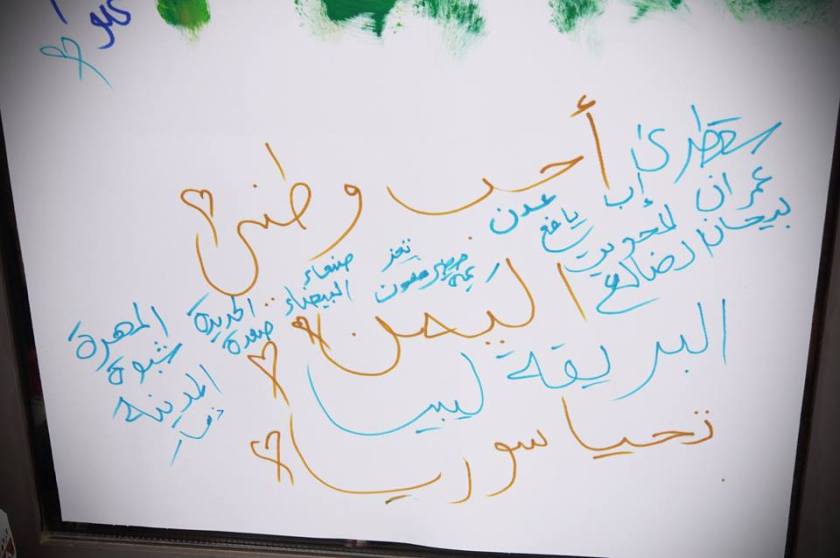 أحب وطني
سقطرى
عمران
بيحان
إب
المحويت
الضالع
عدن
يافع
تعز
صنعاء
البيضاء
الحديدة
صعدة
المهرة
شبوة
المدينة
اليمن
البريقة ليبيا
تحيا سوريا